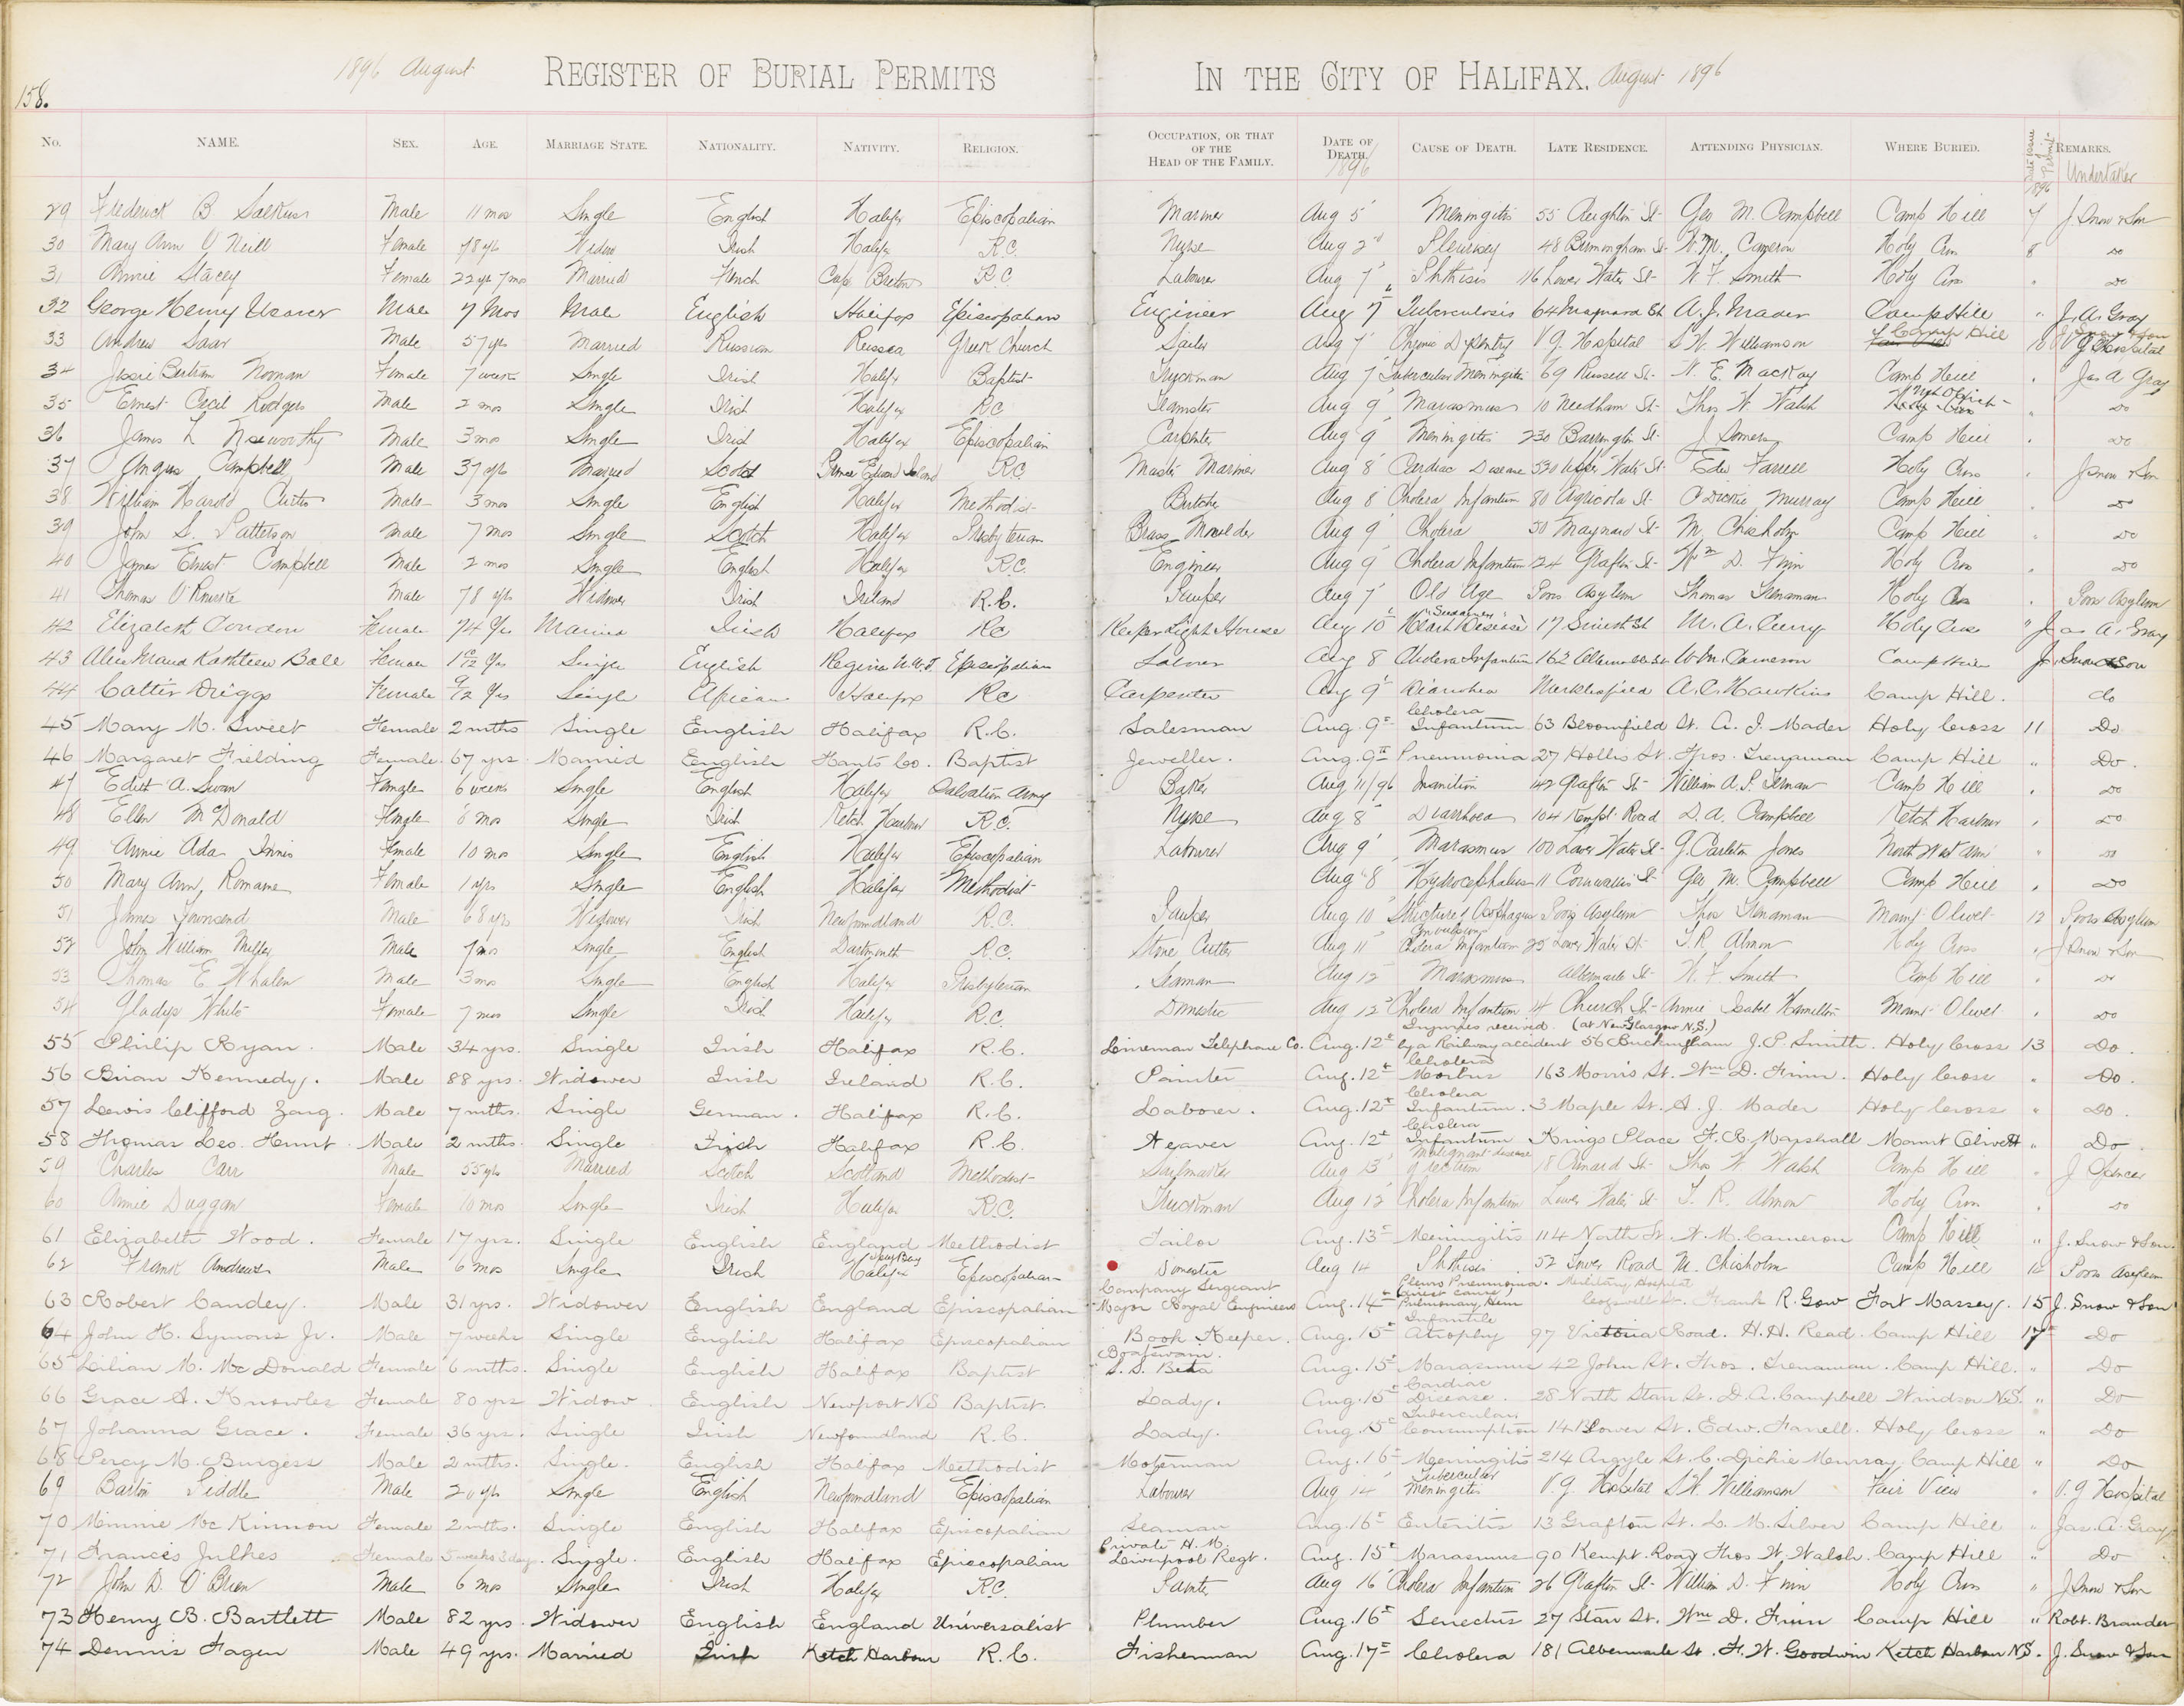 158.
1896 August REGISTER OF BURIAL PERMITS IN THE CITY OF HALIFAX. August 1896
No. NAME. SEX. AGE. MARRIAGE STATE. NATIONALITY. NATIVITY. RELIGION. OCCUPATION, OR THAT OF THE HEAD OF THE FAMILY. DATE OF DEATH. 1896 CAUSE OF DEATH. LATE RESIDENCE. ATTENDING PHYSICIAN. WHERE BURIED. 1896 REMARKS. Undertaker
29 Frederick B Male 11 mos Single English Halifax Episcopalian Mariner Aug 5 Meningitis 55 St Geo M. Campbell Camp Hill 7 J. Snow & Son
30 Mary Ann O'Neill Female 78 yrs Widow Irish Halifax R.C. Nurse Aug 2nd Pleurisy 48 Birmingham St W.M. Cameron Holy Cross 8 do
31 Annie Stacey Female 22 yrs 7 mos Married French Cape Breton R.C Labourer Aug 7 Phthisis 116 Lower Water St W. F. Smith Holy Cross " do
32 George Henry Male 7 Mos Male English Halifax Episcopalian Engineer Aug 7 Tuberculosis 64 Maynard St A. J. Mader Camp Hill " J. A. Gray
33 Andrew Saar Male 57 yrs Married Russian Russia Greek Church Sailor Aug 7 Dysentry V G. Hospital S W. Williamson Camp Hill 10 V G Hospital
34 Jessie Bertram Noonan Female 7 weeks Single Irish Halifax Baptist Truckman Aug 7 Tubercular Meningitis 69 Russell St N. E. MacKay Camp Hill " Jas A Gray
35 Ernest Cecil Rodgers Male 2 mos Single Irish Halifax RC Teamster Aug 9 Marasmus 10 Needham St Thos W Walsh Mount Olivet " do
36 James L Noseworthy Male 3 mos Single Irish Halifax Episcopalian Carpenter Aug 9 Meningitis 230 Barrington St J Somers Camp Hill " do
37 Angus Campbell Male 37 yrs Married Scotch Prince Edward Island R.C. Master Mariner Aug 8 Cardiac Disease 530 Upper Water St Edw Farrell Holy Cross " J Snow & Son
38 William Harold Curtis Male 3 mos Single English Halifax Methodist Butcher Aug 8 Cholera Infantum 80 Agricola St C Dickie Murray Camp Hill " do
39 John S. Patterson Male 7 mos Single Scotch Halifax Presbyterian Brass Moulder Aug 9 Cholera 50 Maynard St M Chisholm Camp Hill " do
40 James Ernest Campbell Male 2 mos Single English Halifax R.C. Engineer Aug 9 Cholera Infantum 24 Grafton St Wm D. Finn Holy Cross " do
41 Thomas O'Rourke Male 78 yrs Widower Irish Ireland R.C. Pauper Aug 7 Old Age Poors Asylum Thomas Trenaman Holy Cross " Poors Asylum
42 Elizabeth Condon Female 74 Yrs Married Irish Halifax RC Keeper Light House Aug 10 Heart Disease 17 St M. A. Curry Holy Cross " Jas A. Gray
43 Alice Maud Kathleen Ball Female 1 Yrs Single English Regina N.W.T. Episcopalian Aug 8 Cholera Infantum 162 Albemarle St Wm. Cameron Camp Hill J. Snow & Son
44 Cattie Driggs Female 9/12 Yrs Single African Halifax RC Carpenter Aug 9 Diarrhoea A. C. Hawkins Camp Hill. do
45 Mary M. Sweet Female 2 mths Single English Halifax R.C. Salesman Aug. 9th Cholera Infantum 63 Bloomfield St. A. J. Mader Holy Cross 11 Do
46 Margaret Fielding Female. 67 yrs Married English Hants Co. Baptist Jeweller. Aug. 9th Pneumonia 27 Hollis St. Thos. Trenaman Camp Hill " Do.
47 Edith A. Swan Female 6 weeks Single English Halifax Salvation Army Baker Aug 11/96 Inanition 142 Grafton St William Camp Hill " do
48 Ellen McDonald Female 6 mos Single Irish Ketch Harbour R.C. Nurse Aug 8 Diarrhoea 104 Kempt Road D. A. Campbell Ketch Harbour " do
49 Annie Ada Innis Female 10 mos Single English Halifax Episcopalian Labourer Aug 9 Marasmus 100 Lower Water St G. Carleton Jones North West Arm " do
50 Mary Ann Romaine Female 1 yrs Single English Halifax Methodist Aug 8 Hydrocephalus 11 Cornwallis St Geo M. Campbell Camp Hill " do
51 James Townsend Male 68 yrs Widower Irish Newfoundland R.C. Pauper Aug 10 Stricture of Oesothagus Poors Asylum Thos Trenaman Mount Olivet 12 Poors Asylum
52 John William Miller Male 7 mos Single English Dartmouth R.C. Stone Cutter Aug 11 Convulsions Cholera Infantum 25 Lower Water St T. R. Almon Holy Cross " J Snow & Son
53 Thomas E Whalen Male 3 mos Single English Halifax Presbyterian Seaman Aug 12 Marasmus Albemarle St W. F. Smith Camp Hill " do
54 Gladys White Female 7 mos Single Irish Halifax R.C. Domestic Aug 12 Cholera Infantum 14 Church St Annie Isabel Hamilton Mount Olivet " do
55 Philip Ryan. Male 34 yrs. Single Irish Halifax R.C. Lineman Telephone Co. Aug. 12th Injuries received (at New Glasgow N.S.) by a Railway accident 56 Buckingham J. P. Smith. Holy Cross 13 Do.
56 Brian Kennedy. Male 88 yrs. Widower Irish Ireland R.C. Painter Aug. 12th Cholera Morbus 163 Morris St. Wm D. Finn. Holy Cross " Do.
57 Lewis Clifford Zong. Male 7 mths. Single German. Halifax R.C. Laborer. Aug. 12th Cholera Infantum. 3 Maple St. A. J. Mader Holy Cross " Do.
58 Thomas Leo. Hunt. Male 2 mths. Single Irish Halifax R.C. Weaver Aug. 12th Cholera Infantum Kings Place F. R. Marshall Mount Olivett " Do.
59 Charles Carr Male 55 yrs Married Scotch Scotland Methodist Sailmaker Aug 13 Malignant disease of rectum 18 St Thos W Walsh Camp Hill " J Spencer
60 Annie Duggan Female 10 mos Single Irish Halifax R.C. Truckman Aug 12 Cholera Infantum Lower Water St T. R. Almon Holy Cross " do
61 Elizabeth Wood. Female 17 yrs. Single English England Methodist Tailor Aug. 13th Meningitis 114 North St W. M. Cameron Camp Hill " J. Snow & Son.
62 Frank Andrews Male 6 mos Single Irish Halifax Episcopalian Domestic Aug 14 Phthisis 52 Tower Road M. Chisholm Camp Hill 14 Poors Asylum
63 Robert Candey. Male 31 yrs. Widower English England Episcopalian Company Sergeant Major Royal Engineers Aug. 14th Pleuro Pneumonia. Pulmonary Hem Military Hospital Cogswell St. Frank R. Gow Fort Massey. 15 J. Snow & Son
64 John H. Symons Jr. Male 7 weeks Single English Halifax Episcopalian Book Keeper. Aug. 15th Infantile Atrophy 97 Victoria Road. H. H. Read. Camp Hill 17th Do
65 Lilian M. McDonald Female 6 mths. Single English Halifax Baptist Boatswain. S. S. Beta Aug. 15th Marasmus 42 John St. Thos. Trenaman. Camp Hill. " Do
66 Grace A. Knowles Female 80 yrs Widow English Newport N S Baptist. Lady. Aug. 15th Cardiac Disease. 28 North Starr St. D. A. Campbell Windsor N.S. " Do
67 Johanna Grace. Female 36 yrs. Single Irish Newfoundland R.C. Lady. Aug. 15th Tubercular Consumption Lower St. Edw. Farrell. Holy Cross " Do
68 Percy M. Burgess Male 2 mths. Single. English Halifax Methodist Moterman Aug. 16th Meningitis 214 Argyle St. C. Dickie Murray Camp Hill " Do
69 Barton Piddle Male 20 yrs Single English Newfoundland Episcopalian Labourer Aug 14 Tubercular Meningitis V. G. Hospital S W. Williamson Fair View " V. G Hospital
70 Minnie McKinnon Female 2 mths. Single English Halifax Episcopalian Seaman Aug. 16th Enteritis 13 Grafton St. L. M. Silver Camp Hill " Jas. A. Gray
71 Frances Julkes Female 5 weeks 3 days. Single. English Halifax Episcopalian Private H. M. Liverpool Regt. Aug. 15th Marasmus 90 Kempt Road Thos W. Walsh. Camp Hill " Do
72 John D. O'Brien Male 6 mos Single Irish Halifax R.C. Painter Aug 16 Cholera Infantum 26 Grafton St William D. Finn Holy Cross " J Snow & Son
73 Henry B. Bartlett Male 82 yrs. Widower English England Universalist Plumber Aug. 16th Senectus 27 Starr St. Wm D. Finn Camp Hill " Robt. Brander
74 Dennis Fagen Male 49 yrs. Married Irish Ketch Harbour R.C. Fisherman Aug. 17th Cholera 181 Albemarle St. F. W. Goodwin Ketch Harbour N.S. " J. Snow & Son